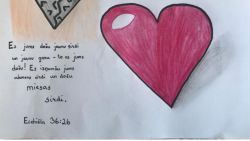 Es jums došu jaunu sirdi
un jaunu garu - to es jums
došu! Es izņemšu jums
akmens sirdi un došu
miesas
sirdi.
Ecēhiēla 36:26